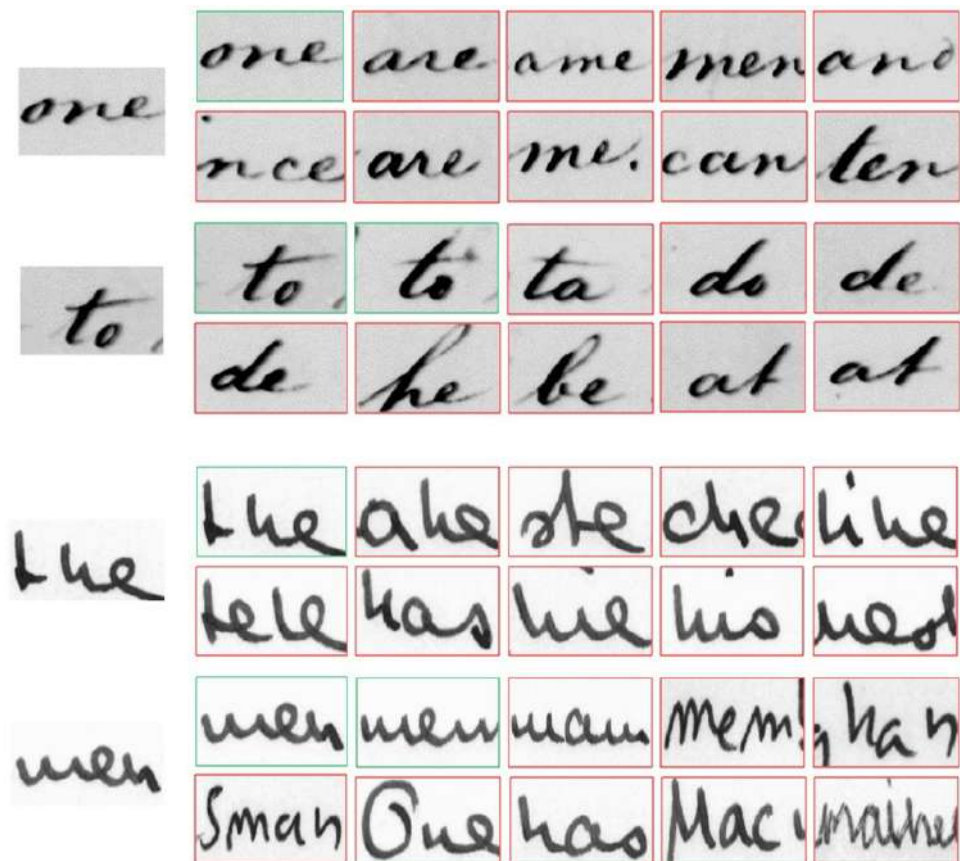 one are a me men and
one
nce are me. can ten
to to ta do de
to
de he be at at
the ahe ste che line
the
tele has hie his nest
men men mam mem! han
men
Sman One has Mac maine